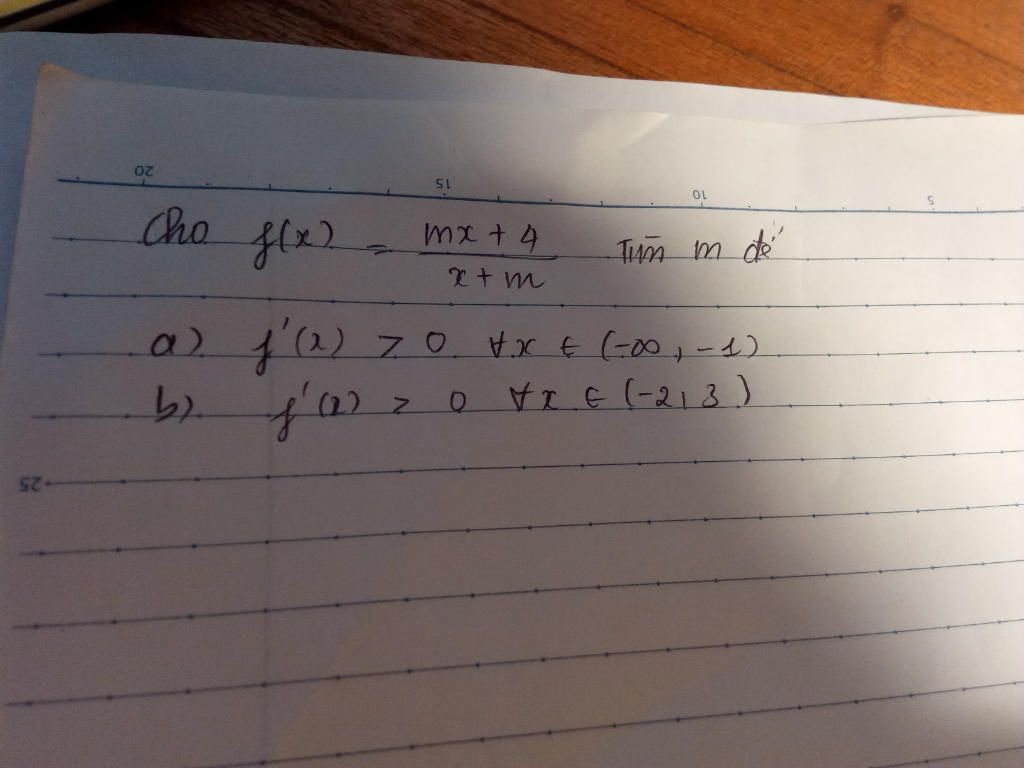 20 15 10 5
Cho f(x) = \frac{mx + 4}{x + m} Tìm m để
a) f'(x) > 0 ∀x ∈ (-∞, -1)
b) f'(x) > 0 ∀x ∈ (-2, 3)
25